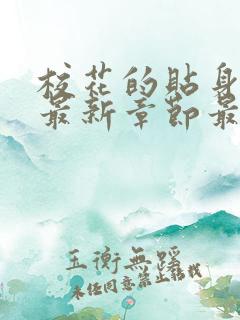 校花的贴身
最新章节最
玉衡無蹤
未经同意禁止转载